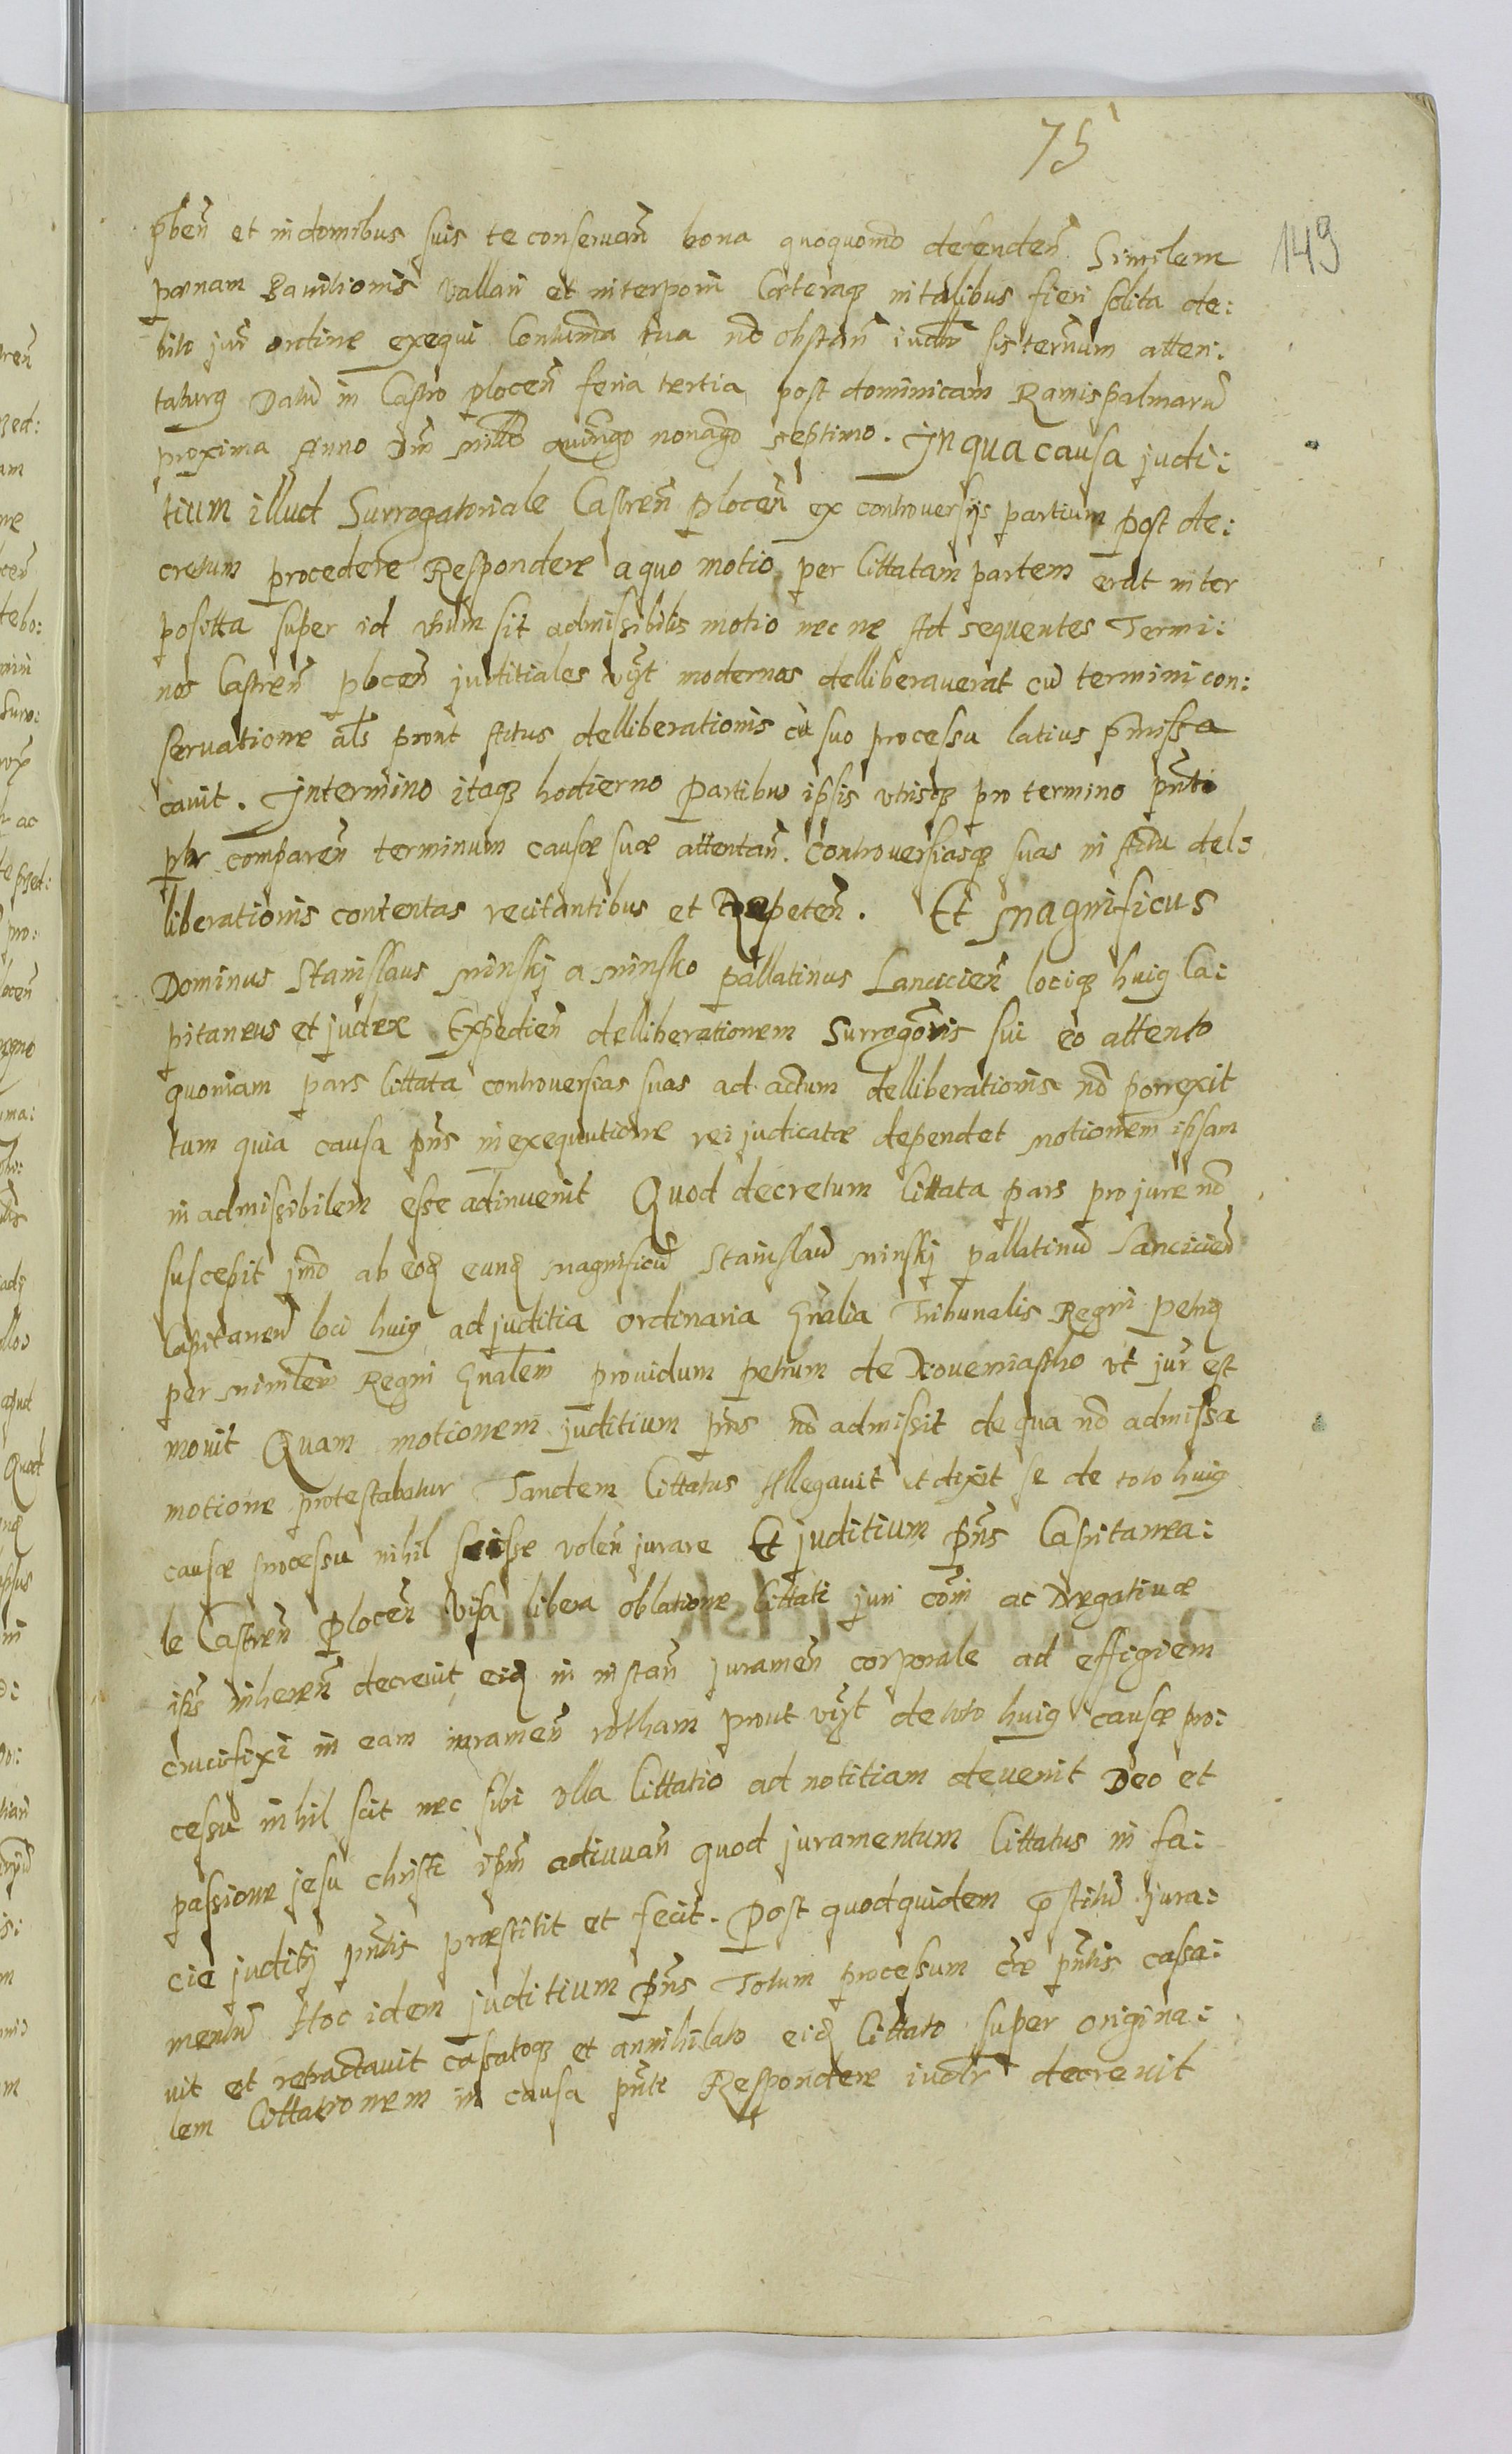 75
149
pben̄ et in domibus suis te conservan̄ bona quoquomō defenden̄ Similem
pœnam Bannitionis vallari et interponi Cæteraq3 in talibus fieri solita de:
bito jur̄ ordine exequi Contuma tua nō obstan̄ iudr̄ sis terīnum atten:
taturg Datū in Castro plocen̄ feria tertia post dominicam Ramispalmarū
proxima Anno Dni Millō quingo nonago septimo. In qua causa judi:
tium illud Surrogatoriale Castren̄ plocen̄ ex controversijs partium post de:
cretum procedere Respondere a quo motio per Cittatam partem erat inter
positta super id utrum sit admissibilis motio nec ne Ad sequentes Termi:
nos Castren̄ plocen̄ juditiales vzt modernos delliberaverat cū termini con:
servatione als prout actus delliberationis cū suo processu latius pmissa
cavit. In termino itaq3 hodierno Partibus ipsis utrisq3 pro termino pnti
pbr comparen̄ terminum causæ suæ attentan̄. Controversiasq3 suas in actu del:
liberationis contentas recitantibus et Repeten̄. Et Magnificus
Dominus Stanislaus Minskj a Minsko pallatinus Lancicien̄ lociq3 huig Ca:
pitaneus et judex Expedien̄ delliberationem Surrogōris sui eo attento
quoniam pars Cittata controversias suas ad actum delliberationis nō porrexit
tum quia causa pns in exequutione rei judicatæ dependet motionem ipsam
in admissibilem esse adinvenit Quod decretum Cittata pars pro jure nō
suscepit imo ab eoq eunq Magnificū Stanislaū Minskj pallatinū Lancicien̄
Capitaneū loci huig ad juditia ordinaria Gnalia Tribunalis Regni petrig
per Minrlem Regni Gnalem providum petrum de Novemiastho ut jur̄ est
movit Quam motionem juditium pns nō admissit de qua nō admissa
motione protestabatur Tandem Cittatus Allegavit et dixit se de toto huig
causæ processu nihil scisse volen̄ jurare Et juditium pns Capitanea:
le Castren̄ plocen̄ visa libera oblatione Cittati juri com̄ ac Negativæ
ipss inheren̄ decrevit eiq in instan̄ juramen̄ corporale ad effigiem
crucifixi in eam iuramen̄ rotham prout vzt de toto huig causæ pro:
cessu nihil scit nec sibi ulla Cittatio ad notitiam devenit Deo et
passione jesu christi ipm adiuvan̄ quod juramentum Cittatus in fa:
cie juditij pntis præstitit et fecit. Post quodquidem pstitū jura:
mentū Hoc idem juditium pns Totum processum cæ pntis cassa:
vit et retractavit cassatoq3 et annihilato eiq Cittato super origina:
lem Cittationem in causa pnti Respondere iudr̄ decrevit